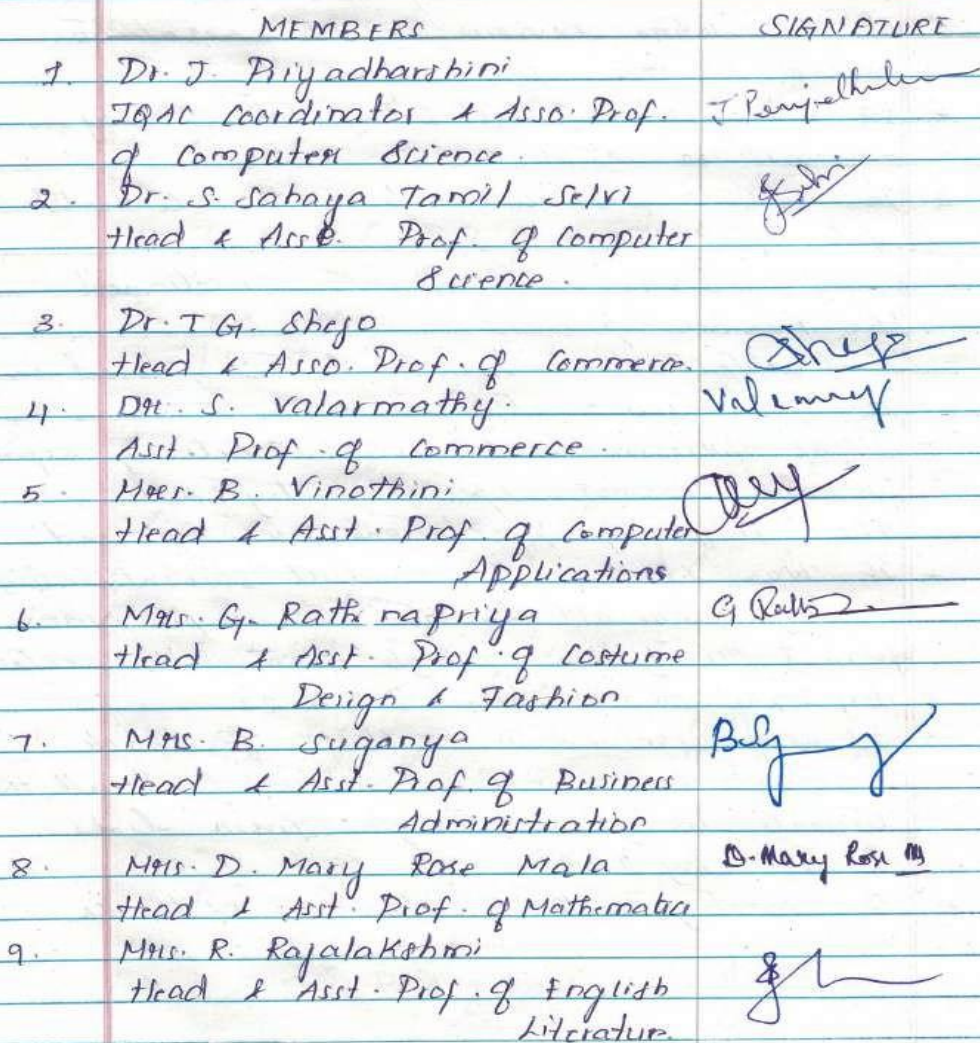 MEMBERS SIGNATURE
1. Dr. J. Priyadharshini
IQAC Coordinator & Asso. Prof.
of Computer Science.
2. Dr. S. Sahaya Tamil Selvi
Head & Asso. Prof. of Computer
Science.
3. Dr. T G. Shejo
Head & Asso. Prof. of Commerce.
4. Dr. S. Valarmathy.
Asst. Prof. of Commerce.
5. Mrs. B. Vinothini
Head & Asst. Prof. of Computer
Applications
6. Mrs. G. Rathinapriya G Rath
Head & Asst. Prof. of Costume
Design & Fashion
7. Mrs. B. Suganya
Head & Asst. Prof. of Business
Administration
8. Mrs. D. Mary Rose Mala D. Mary Rose M
Head & Asst. Prof. of Mathematics
9. Mrs. R. Rajalakshmi
Head & Asst. Prof. of English
Literature.